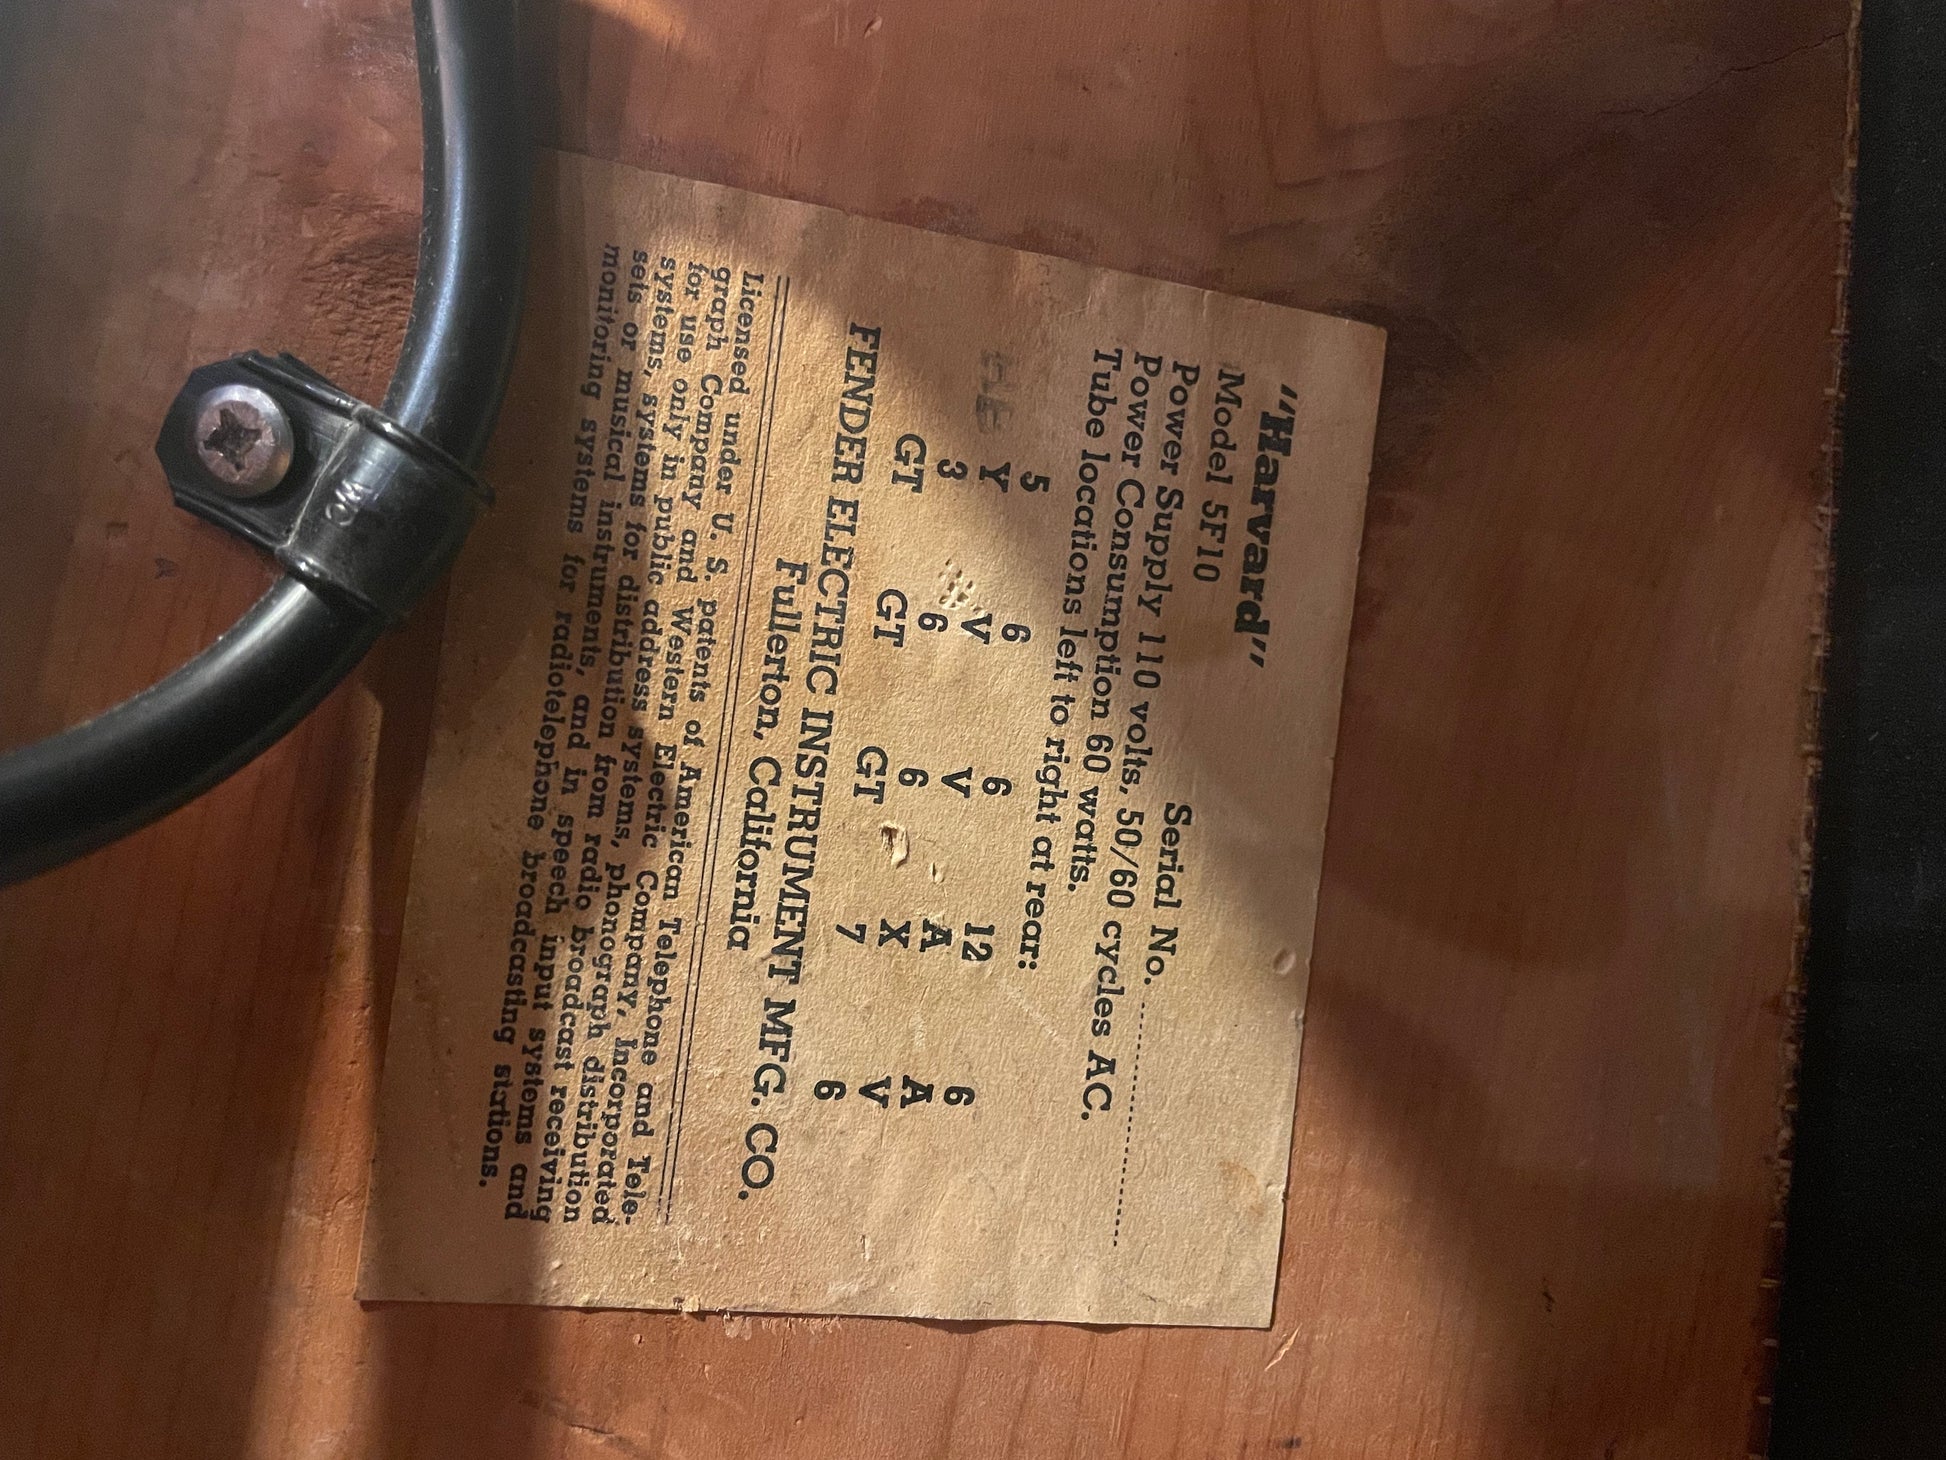 "Harvard"
Model 5F10 Serial No. ........................
Power Supply 110 volts, 50/60 cycles AC.
Power Consumption 60 watts.
Tube locations left to right at rear:
5 6 6 12 6
Y V V A A
3 6 6 X V
GT GT GT 7 6
FENDER ELECTRIC INSTRUMENT MFG. CO.
Fullerton, California
Licensed under U. S. patents of American Telephone and Tele-
graph Company and Western Electric Company, Incorporated
for use only in public address systems, phonograph distribution
systems, systems for distribution from radio broadcast receiving
sets or musical instruments, and in speech input systems and
monitoring systems for radiotelephone broadcasting stations.